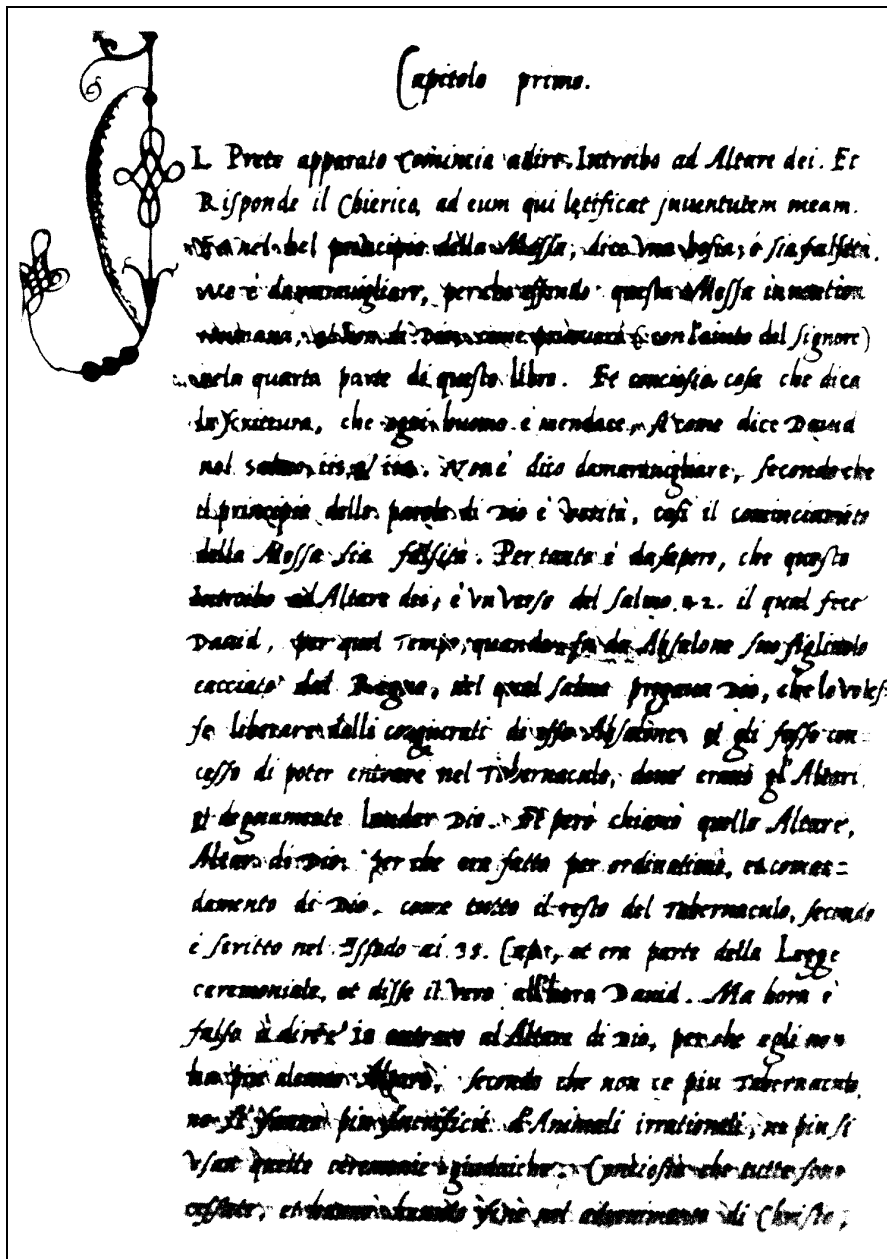 Capitolo primo.
IL Prete apparato comincia adire. Introibo ad Altare dei. Et
Risponde il Chierico, ad eum qui lętificat juuentutem meam.
nel bel principio della Messa, dice una bosia, ó sia falsità.
è damarauigliare, perche essendo questa Messa inuention
humana, come prouarò (con l'aiuto del signore)
nela quarta parte di questo libro. Et conciosia cosa che dica
la Scrittura, che ogni huomo è mendace, come dice Dauid
nel salmo. Non è damarauigliare, secondo che
il principio delle parole di Dio è verità, così il cominciaméto
della Messa sia falsità. Per tanto è da sapere, che questo
Introibo ad Altare dei, è un verso del salmo. 42. il qual fece
Dauid, per quel Tempo, quando fu da Absalone suo figliuolo
cacciato dal Regno, nel qual salmo pregaua Dio, che lo voles-
se liberare dalli congiurati di esso Absalone, et gli fosse con
cesso di poter entrare nel Tabernaculo, doue erano gl'Altari,
et degnamente laudar Dio. Et però chiamò quello Altare,
Altar di Dio: perche era fatto per ordinatione, et coman=
damento di Dio. come tutto il resto del Tabernaculo, secondo
è scritto nel Essodo ai 35. Cap., et era parte della Legge
ceremoniale, et disse il vero allhora Dauid. Ma hora è
falso à dire io entrarò al Altare di Dio, perche egli non
ha piu alcuno Altare, secondo che non ce piu Tabernaculo,
ne si fanno piu sacrificii d'Animali irrationali, ne piu si
usan quelle ceremonie giudaiche. Conciosia che tutte sono
cessate, et hanno hauuto fine nel aduenimento di Christo,